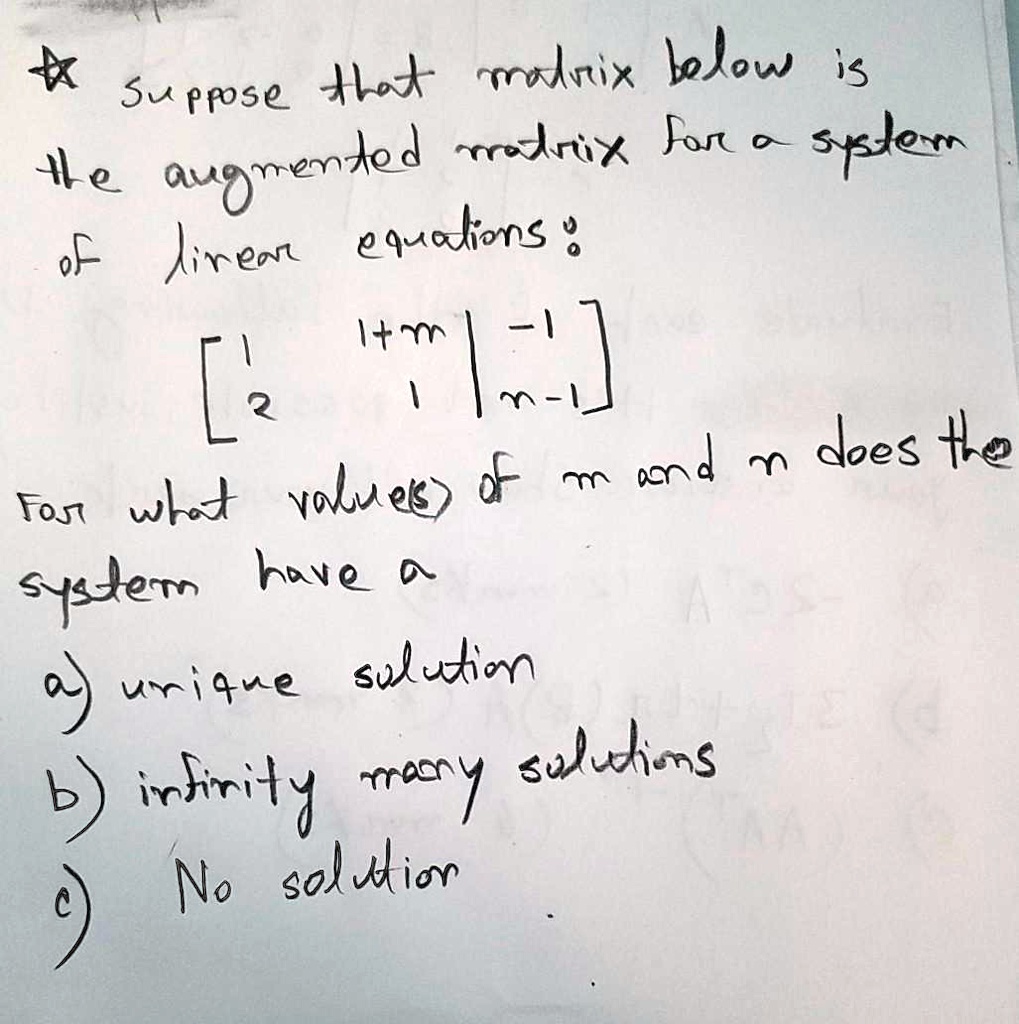 ☆ Suppose that matrix below is
the augmented matrix for a system
of linear equations:
[ 1 1+m | -1 ]
[ 2 1 | n-1 ]
For what value(s) of m and n does the
system have a
a) unique solution
b) infinity many solutions
c) No solution